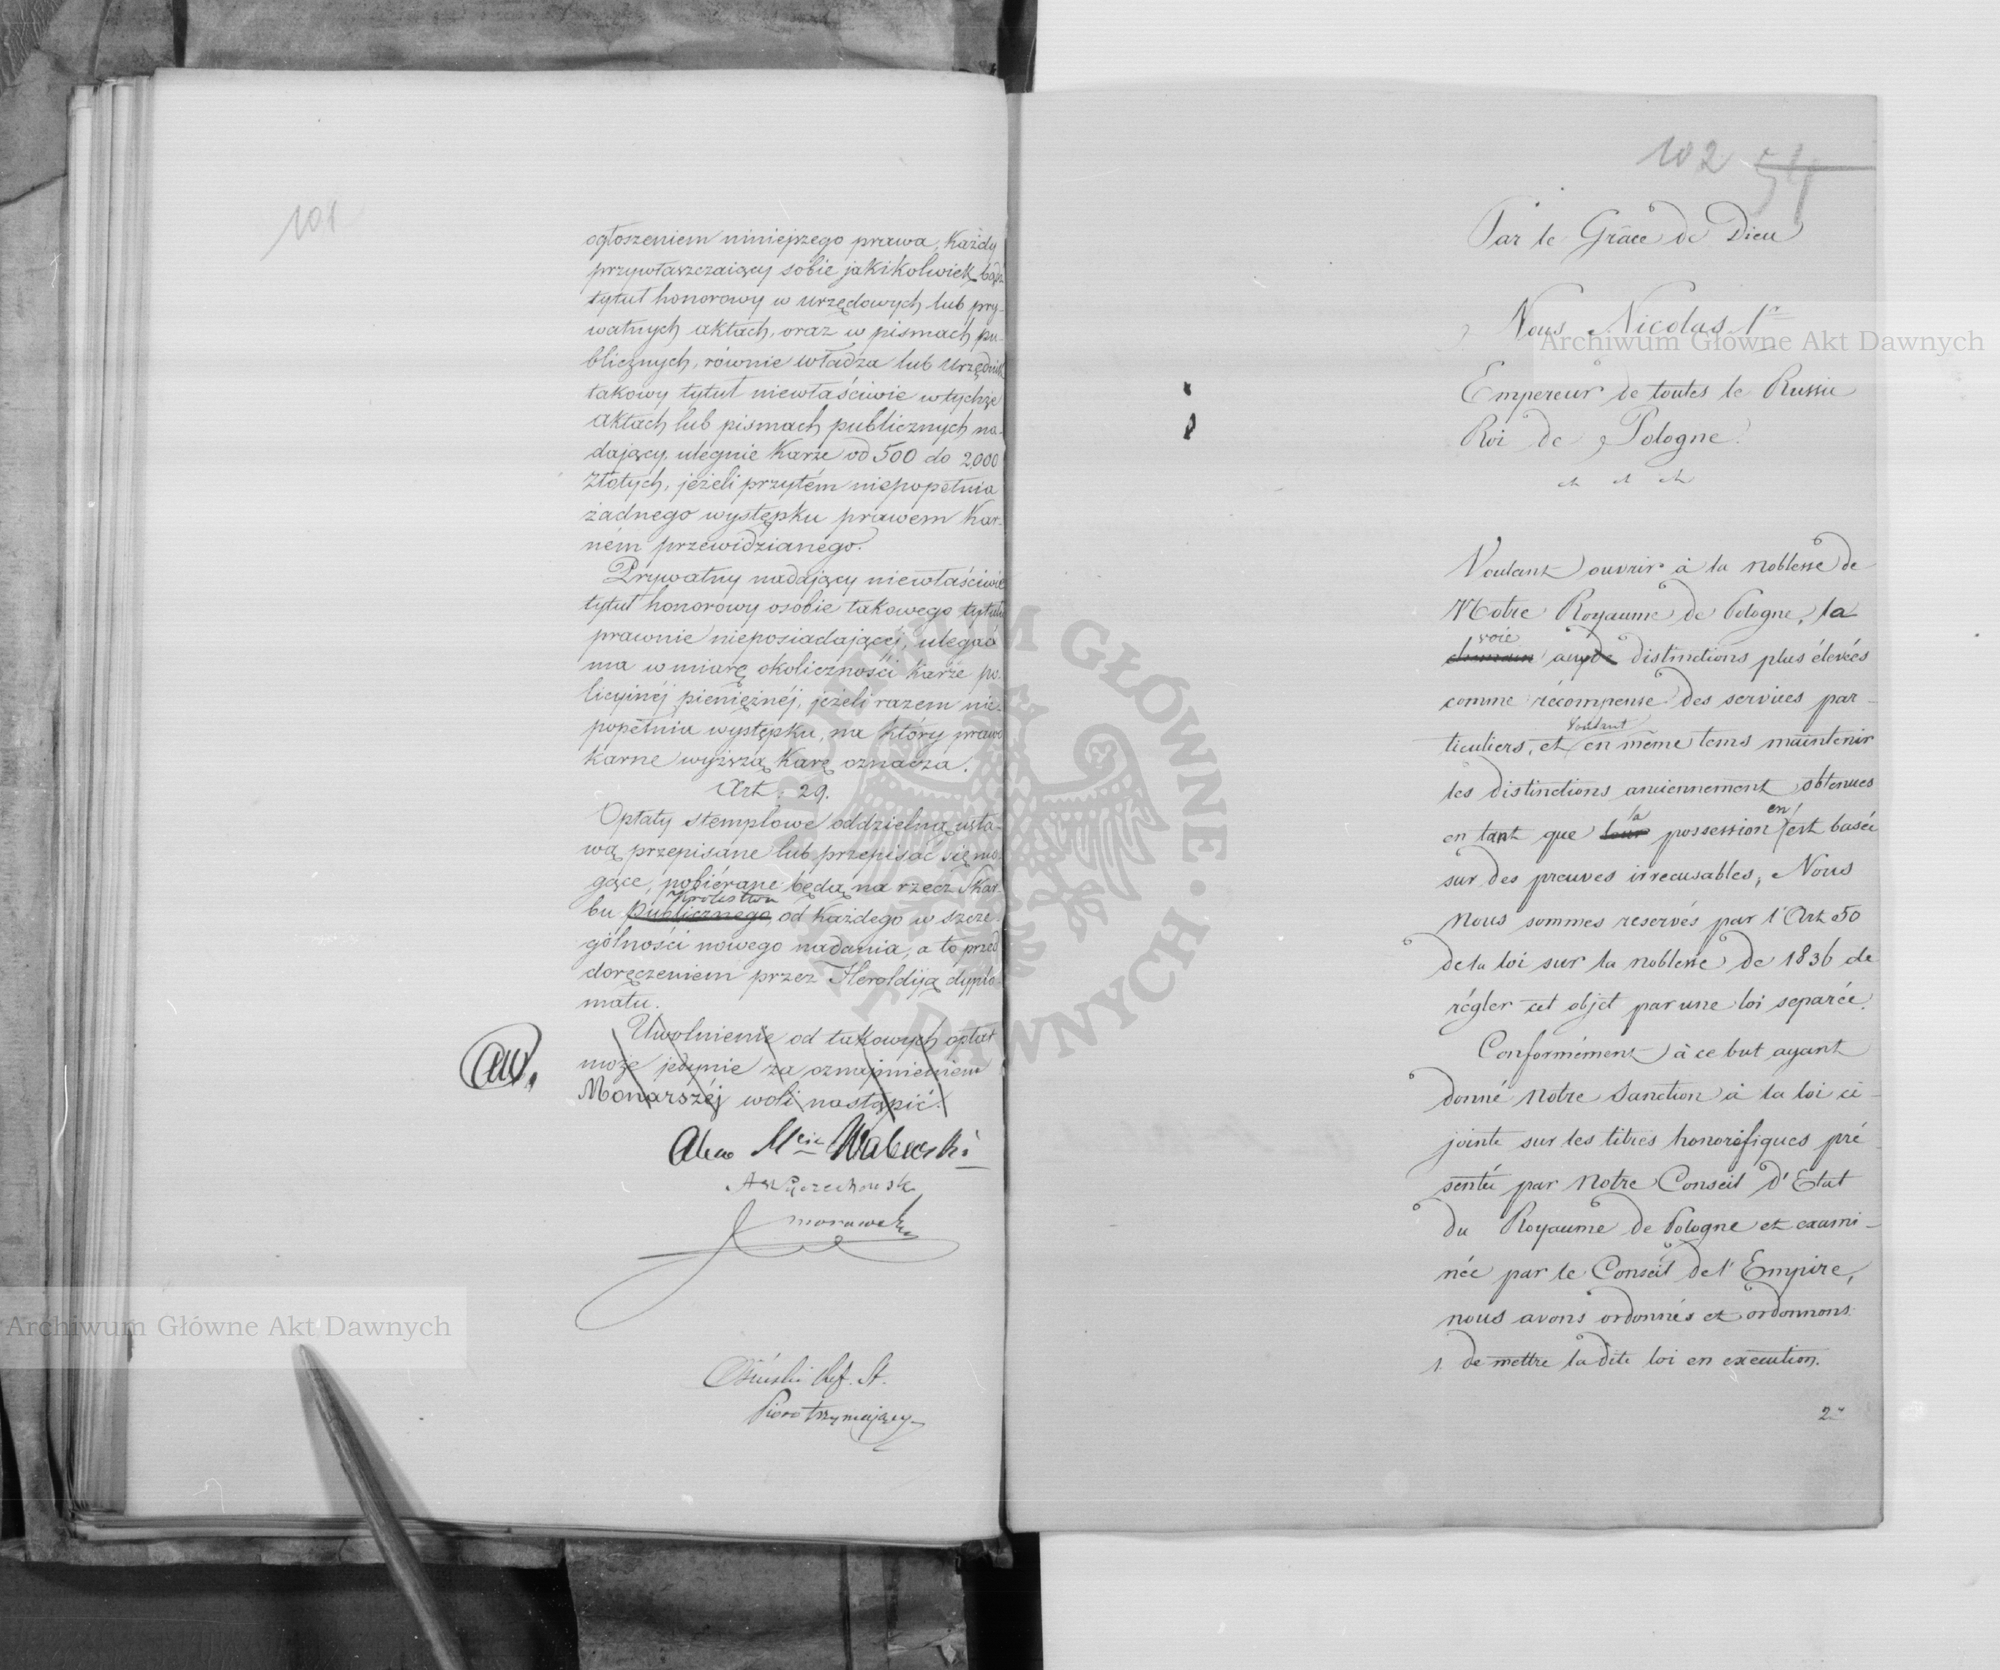 101
ogłoszeniem niniejszego prawa, Każdy
przywłaszczaiący sobie jakikolwiek bądź
tytuł honorowy w urzędowych lub pry-
watnych aktach, oraz w pismach pu-
blicznych, równie władza lub Urzędnik
takowy tytuł niewłaściwie w tychże
aktach lub pismach publicznych na-
dający, ulegnie Karze od 500 do 2,000
Złotych, jeżeli przytém niepopełnia
żadnego występku prawem Kar-
ném przewidzianego.
Prywatny nadający niewłaściwie
tytuł honorowy osobie takowego tytułu
prawnie nieposiadającéj, ulegać
ma w miarę okoliczności Karze po-
licyinéj pieniężnéj, jeżeli razem nie-
popełnia występku, na który prawo
Karne wyższą Karę oznacza.
Art: 29.
Opłaty stemplowe oddzielną usta-
wą przepisane lub przepisać się mo-
gące, pobiérane będą na rzecz Skar-
Królestwa
bu Publicznego, od Każdego w szcze-
gólności nowego nadania, a to przed
doręczeniem przez Heroldiją dyplo-
matu.
Uwolnienie od takowych opłat
może jedynie za oznajmieniem
Monarszéj woli nastąpić.
Morawski
Ref. St.
Pioro trzymający
102 54
Par le Grâce de Dieu
Nous Nicolas 1er
Empereur de toutes le Russie
Roi de Pologne.
Voulant ouvrir à la noblesse de
Notre Royaume de Pologne, la
voie
chemin aux de distinctions plus élevées
comme récompense des services par-
voulant
ticuliers, et en même tems maintenir
les distinctions anciennement obtenues
la en
en tant que leur possession est basée
sur des preuves irrecusables, Nous
Nous sommes reservés par l'Art 50
de la loi sur la noblesse de 1836 de
régler cet objet par une loi separée.
Conformément à ce but ayant
donné Notre Sanction à la loi ci-
jointe sur les titres honorifiques pré-
sentée par Notre Conseil d'Etat
du Royaume de Pologne et exami-
née par le Conseil de l'Empire,
nous avons ordonnés et ordonnons
1. de mettre la dite loi en exécution.
2°
Archiwum Główne Akt Dawnych
Archiwum Główne Akt Dawnych
ARCHIWUM GŁÓWNE AKT DAWNYCH